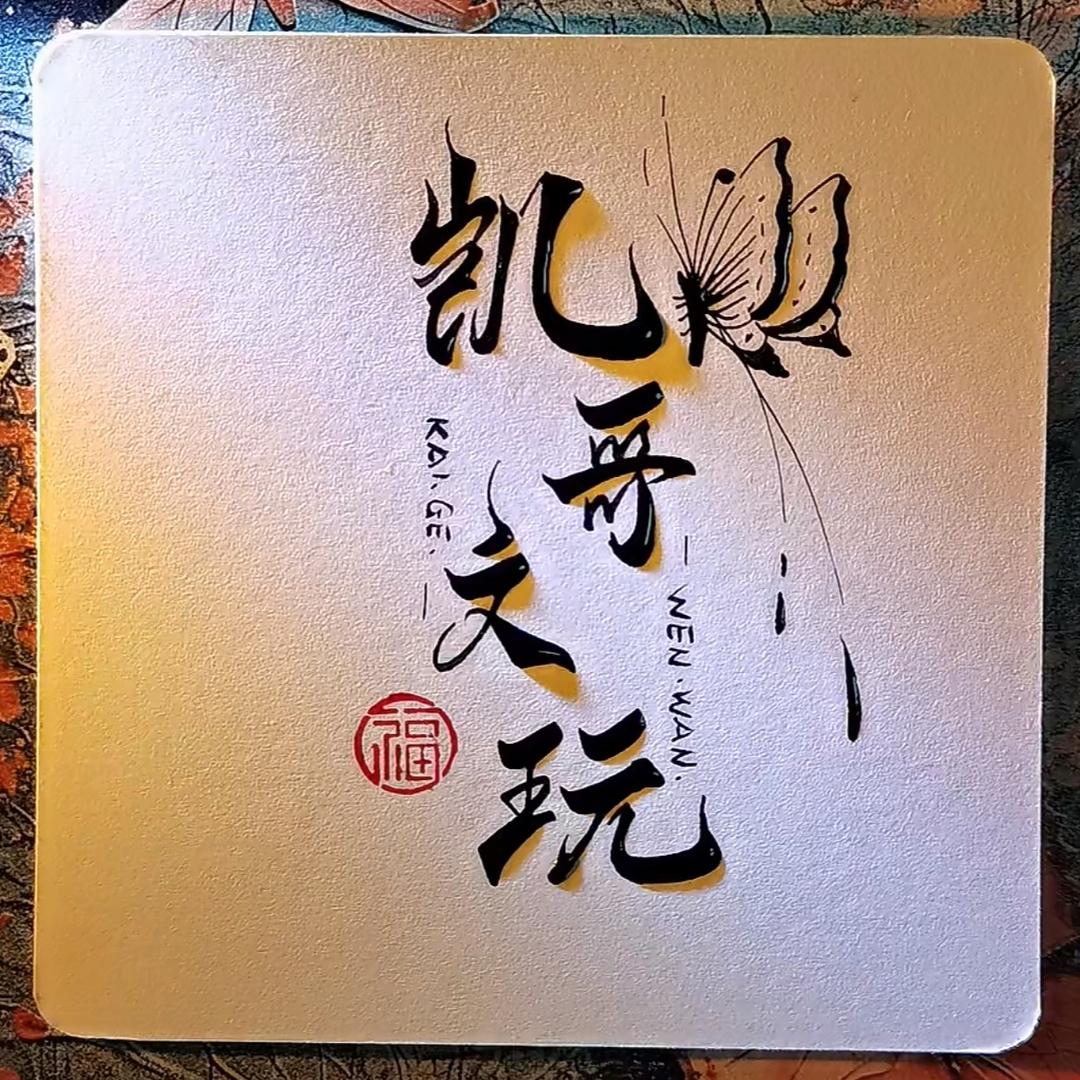 凯哥
文玩
KAI.GE.
WEN.WAN.
福